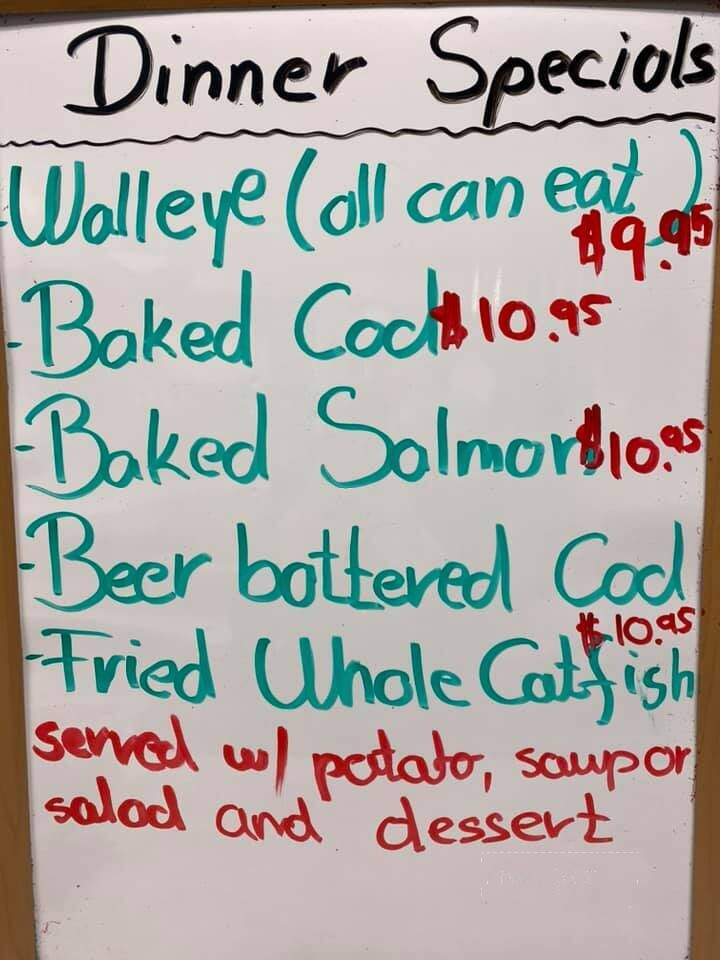 Dinner Specials
-Walleye (all can eat )
$9.95
-Baked Cod $10.95
-Baked Salmon $10.95
-Beer battered Cod
$10.95
-Fried Whole Catfish
served w/ potato, soup or
salad and dessert